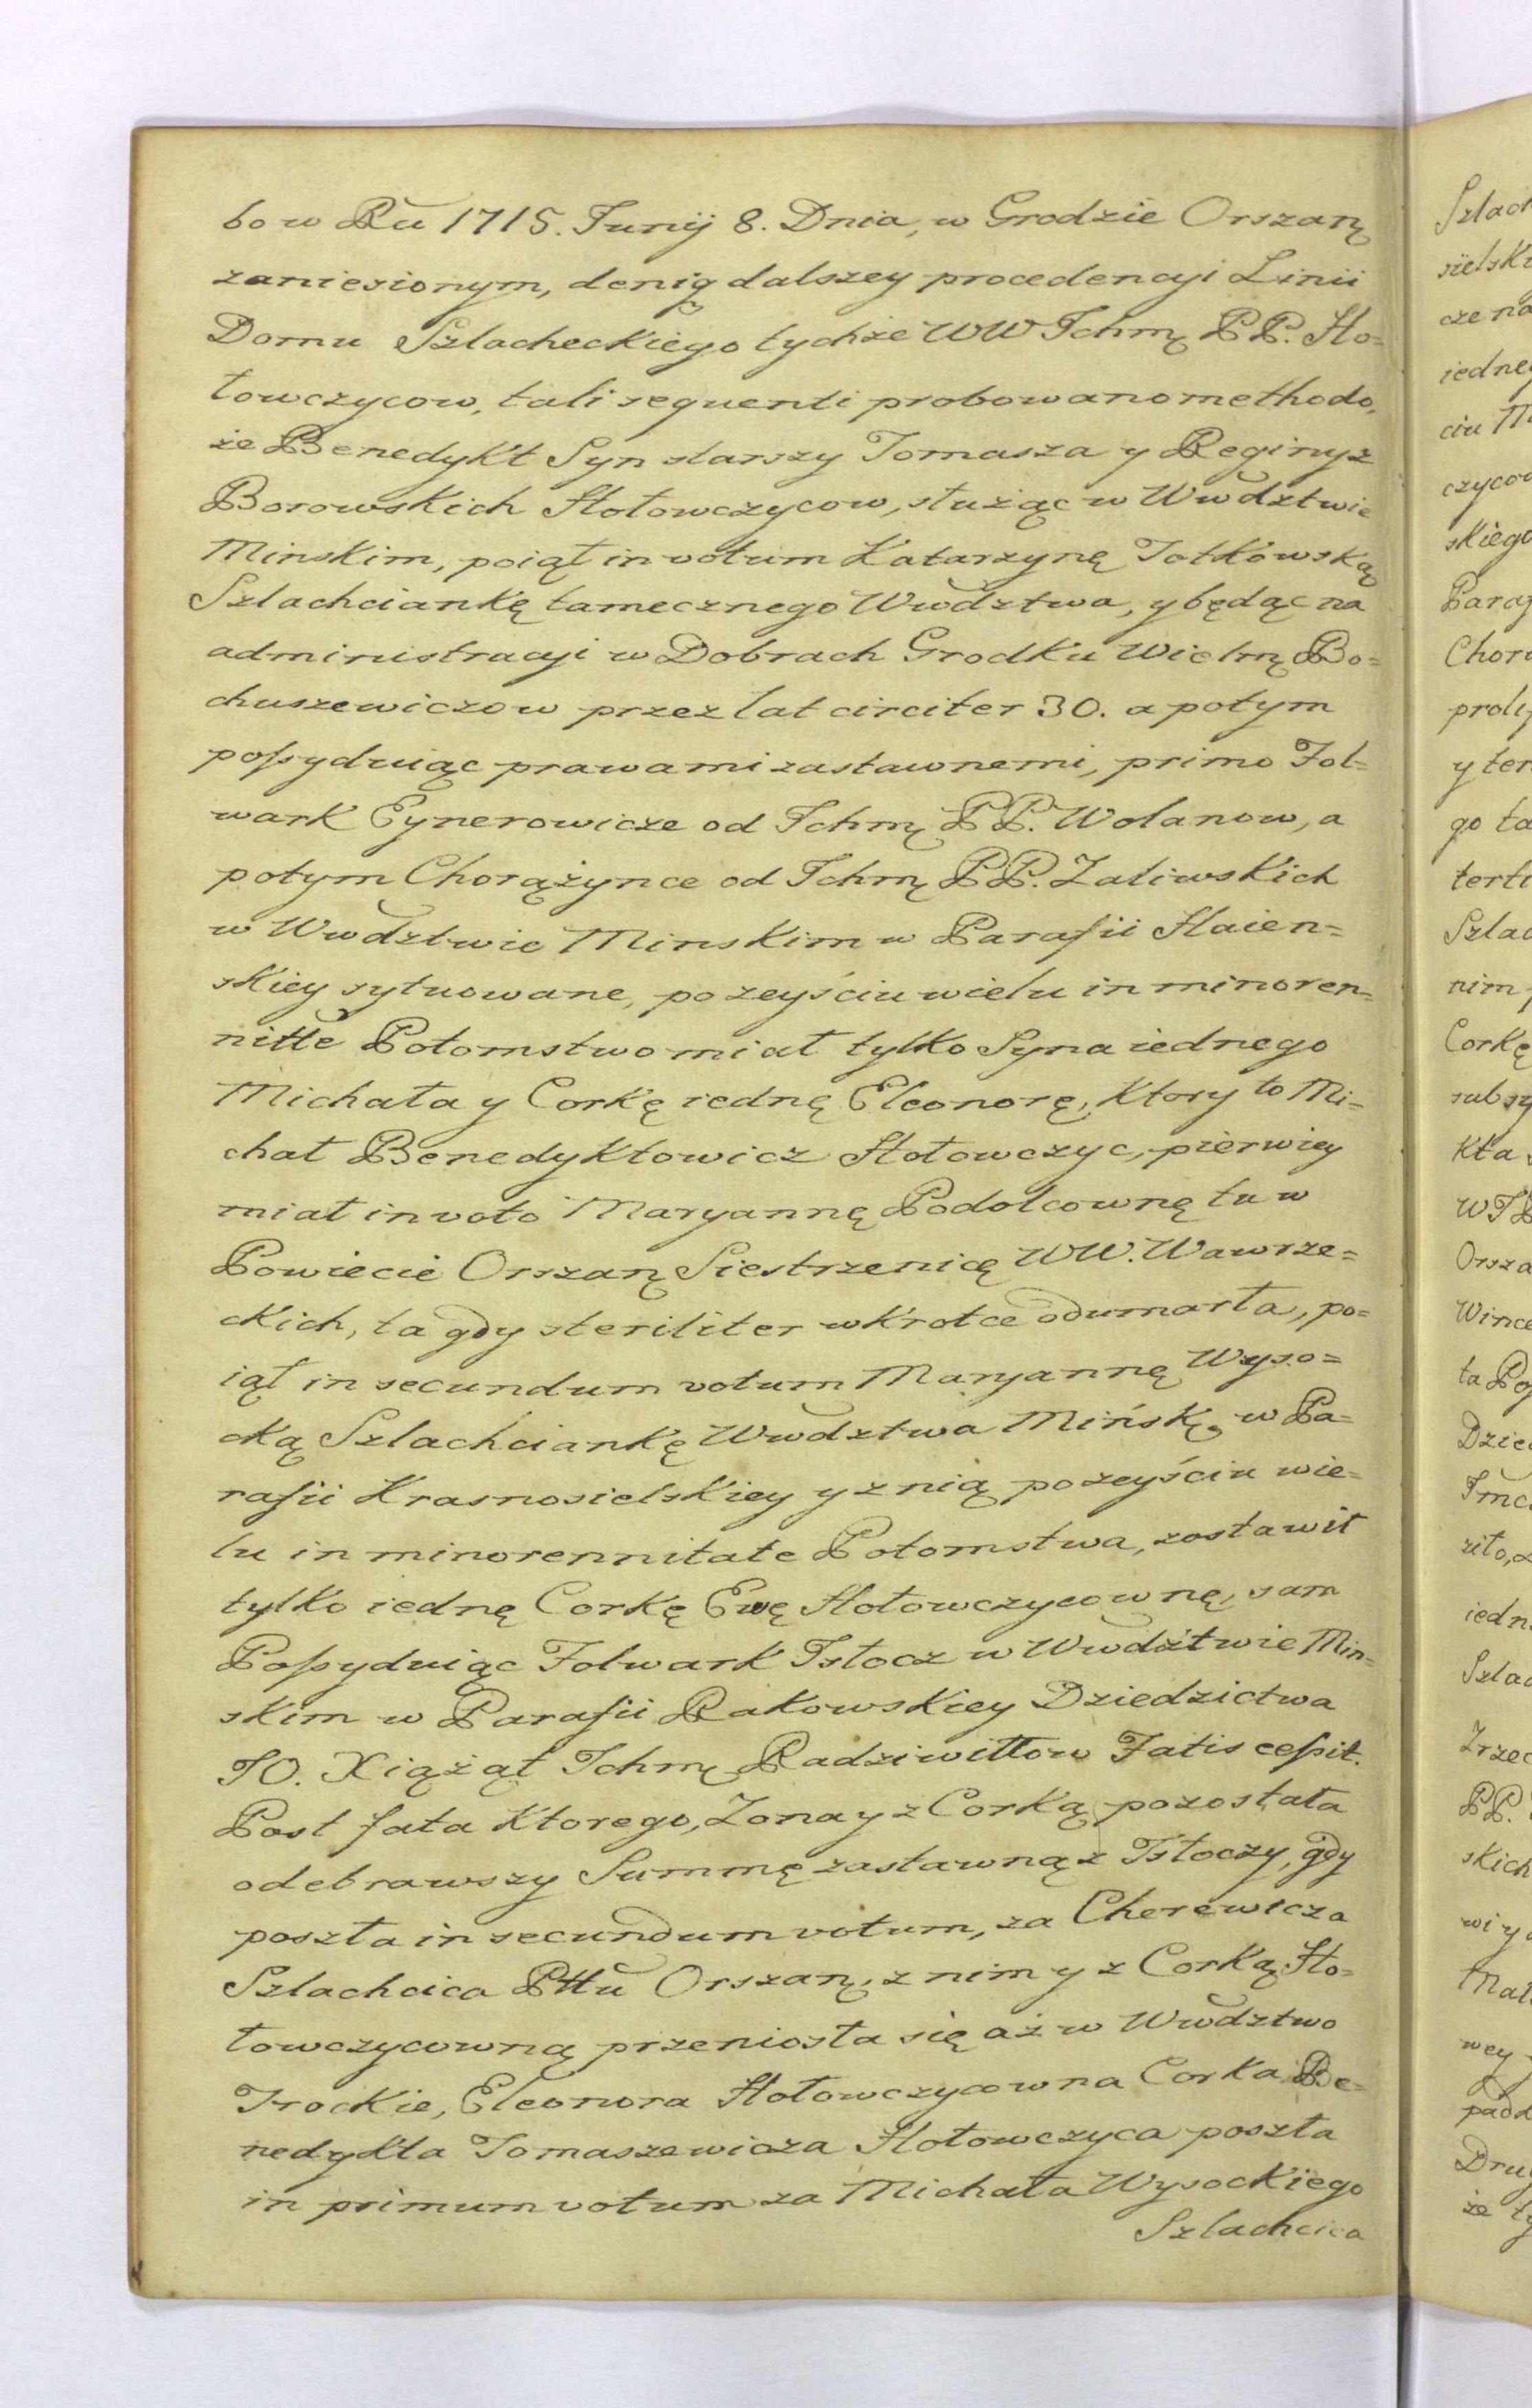 bo w Ru 1715. Junij 8. Dnia, w Grodzie Orszań
zaniesionym, deniq dalszey procedencyi Linii
Domu Szlacheckiego tychże WW Ichmę PP. Ho=
łowczycow, tali sequenti probowano methodo,
że Benedykt Syn starszy Tomasza y Reginy z
Borowskich Hołowczycow, służąc w Wwdztwie
Minskim, poiął in votum Katarzynę Tołkowską
Szlachciankę tamecznego Wwdztwa, y będąc na
administracyi w Dobrach Grodku Wielmę Bo=
chuszewiczow przez lat circiter 30. a potym
possyduiąc prawami zastawnemi, primo Fol=
wark Eynerowicze od Ichmę PP. Wolanow, a
potym Chorążynce od Ichmę PP. Zaliwskich
w Wwdztwie Minskim w Parafii Haien=
skiey sytuowane, po zeyściu wielu in minoren=
nitte Potomstwo miał tylko Syna iednego
Michała y Corkę iednę Eleonorę, Ktory to Mi=
chał Benedyktowicz Hołowczyc, pierwiey
miał in voto Maryannę Podolcownę tu w
Powiecie Orszanę Siestrzenicę WW. Wawrze=
ckich, ta gdy steriliter wkrotce odumarła, po=
iął in secundum votum Maryannę Wyso=
cką Szlachciankę Wwdztwa Mińskę, w Pa=
rafii Krasnosielskiey y z nią po zeyściu wie=
lu in minorennitate Potomstwa, zostawił
tylko iednę Corkę Ewę Hołowczycownę, sam
Possyduiąc Folwark Isłocz w Wwdztwie Min=
skim w Parafii Rakowskiey Dziedzictwa
JO. Xiążąt Ichmę Radziwiłłow Fatis cessit.
Post fata Ktorego, Zona y z Corką pozostała
odebrawszy Summę zastawną z Isłoczy, gdy
poszła in secundum votum, za Cherewicza
Szlachcica Pttu Orszanę, z nim y z Corką Ho=
łowczycowną przeniosła się aż w Wwdztwo
Trockie, Eleonora Hołowczycowna Corka Be=
nedykta Tomaszewicza Hołowczyca poszła
in primum votum za Michała Wysockiego
Szlachcica